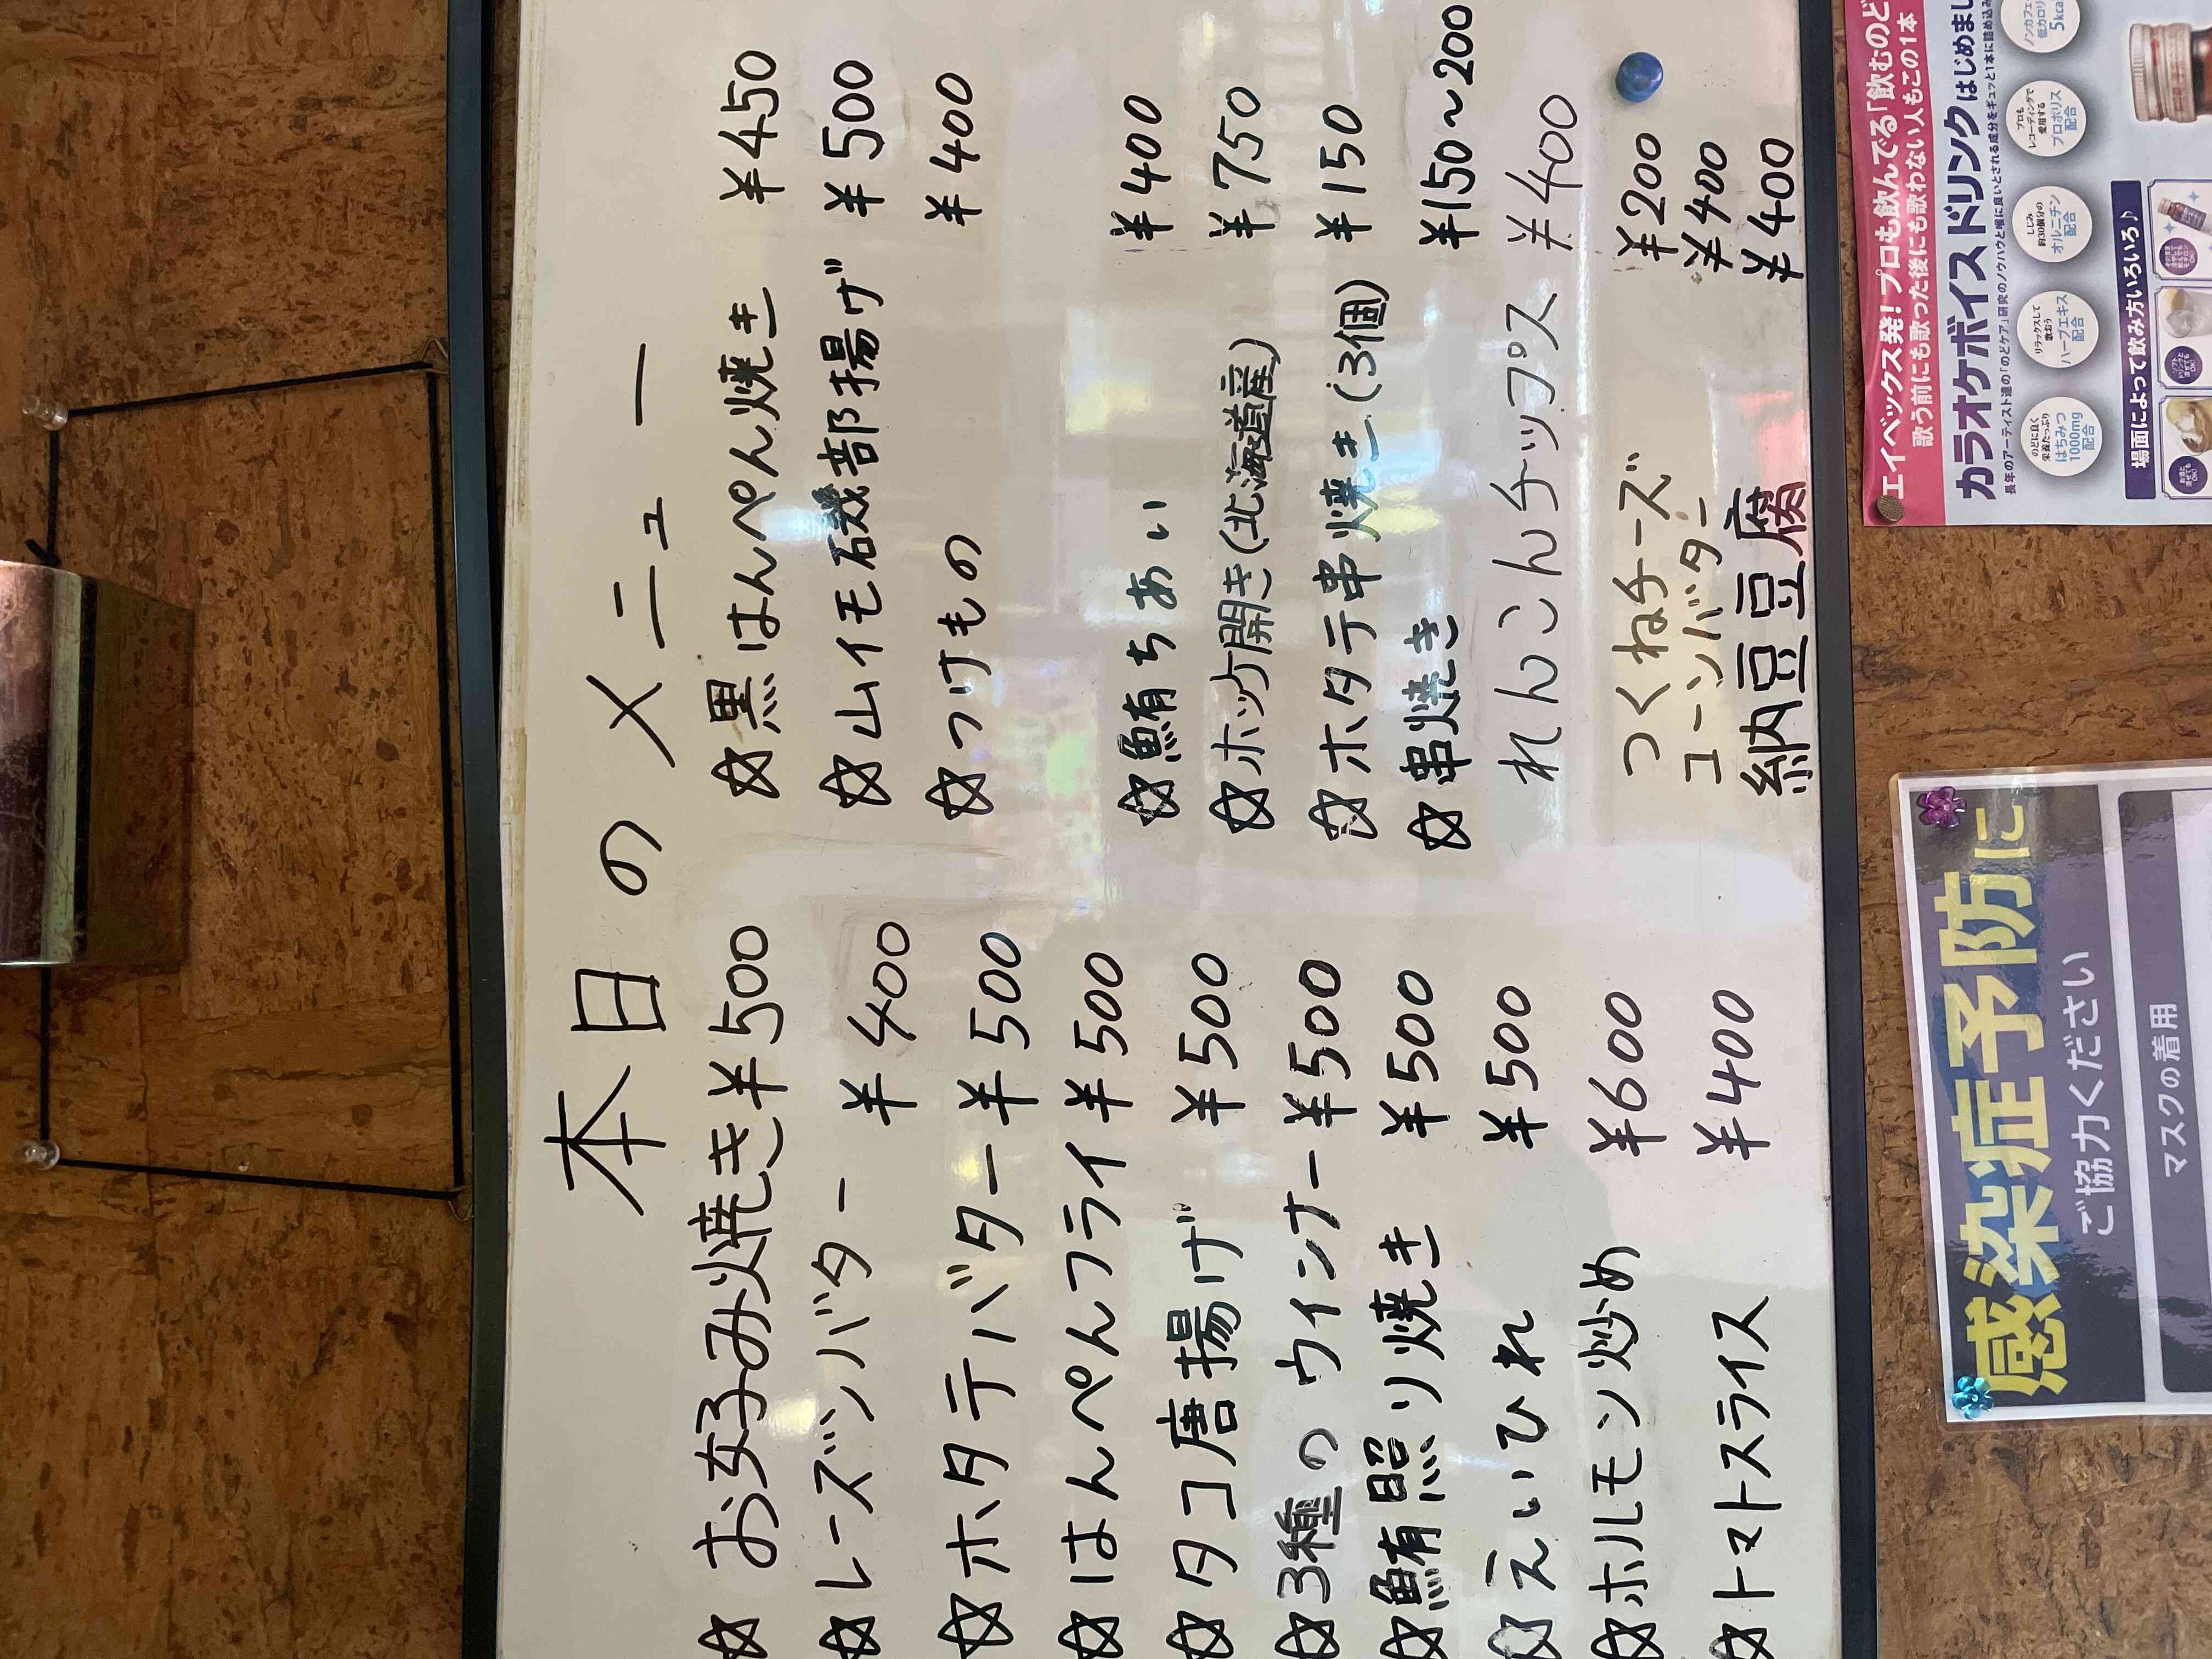 本日のメニュー
☆お好み焼き ¥500
☆レーズンバター ¥400
☆ホタテバター ¥500
☆はんぺんフライ ¥500
☆タコ唐揚げ ¥500
☆3種のウインナー ¥500
☆鮪照り焼き ¥500
☆えいひれ ¥500
☆ホルモン炒め ¥600
☆トマトスライス ¥400
☆黒はんぺん焼き ¥450
☆山イモ磯部揚げ ¥500
☆つけもの ¥400
☆鮪ちあい ¥400
☆ホッケ開き(北海道産) ¥750
☆ホタテ串焼き(3個) ¥150
☆串焼き ¥150~200
れんこんチップス ¥400
つくねチーズ ¥200
コーンバター ¥400
納豆豆腐 ¥400
感染症予防に
ご協力ください
マスクの着用
エイベックス発!プロも飲んでる「飲むのど
歌う前にも歌った後にも歌わない人もこの1本
カラオケボイスドリンクはじめまし
長年のアーティスト達の「のどケア」研究のノウハウと喉に良いとされる成分をギュッと1本に詰め込み
のどに良く
栄養たっぷり
はちみつ
1000mg
配合
リラックスして
歌おう
ハーブエキス
配合
しじみ
約30個分の
オルニチン
配合
プロも
レコーディングで
愛用する
プロポリス
配合
ノンカフェ
低カロリ
5kca
場面によって飲み方いろいろ♪